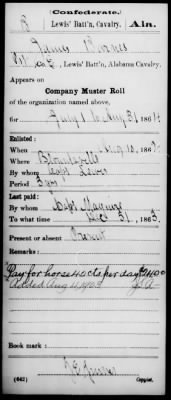 (Confederate.)
B Lewis' Batt'n, Cavalry. Ala.
James Barnes
Pvt, Co. B, Lewis' Batt'n, Alabama Cavalry.
Appears on
Company Muster Roll
of the organization named above,
for July 1 to Aug 31, 1864
Enlisted:
When Aug 10, 186
Where Blountsville
By whom Capt Lewis
Period 3 yrs
Last paid:
By whom Capt Maguire
To what time Dec 31, 1863.
Present or absent Present
Remarks:
Pay for horse 40 cts per day
Aug 11, 1863
Book mark:
(642) Copyist.